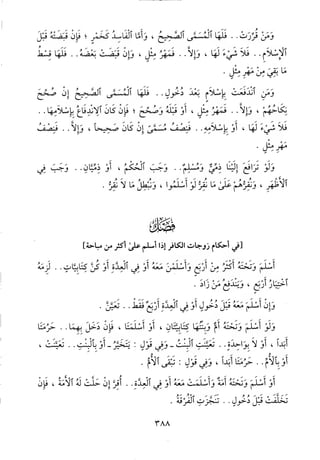 وَمَنْ قُرِّرَتْ . . فَلَهَا الْمُسَمَّى الصَّحِيحُ ، وَأَمَّا الْفَاسِدُ كَخَمْرٍ ؛ فَإِنْ قَبَضَتْهُ قَبْلَ
الْإِسْلَامِ . . فَلَا شَيْءَ لَهَا ، وَإِلَّا . . فَمَهْرُ مِثْلٍ ، وَإِنْ قَبَضَتْ بَعْضَهُ . . فَلَهَا قِسْطُ
مَا بَقِيَ مِنْ مَهْرِ مِثْلٍ .
وَمَنِ انْدَفَعَتْ بِإِسْلَامٍ بَعْدَ دُخُولٍ . . فَلَهَا الْمُسَمَّى الصَّحِيحُ إِنْ صُحِّحَ
نِكَاحُهُمْ ، وَإِلَّا . . فَمَهْرُ مِثْلٍ ، أَوْ قَبْلَهُ وَصُحِّحَ ؛ فَإِنْ كَانَ الِانْدِفَاعُ بِإِسْلَامِهَا . .
فَلَا شَيْءَ لَهَا ، أَوْ بِإِسْلَامِهِ . . فَنِصْفُ مُسَمًّى إِنْ كَانَ صَحِيحاً ، وَإِلَّا . . فَنِصْفُ
مَهْرِ مِثْلٍ .
وَلَوْ تَرَافَعَ إِلَيْنَا ذِمِّيٌّ وَمُسْلِمٌ . . وَجَبَ الْحُكْمُ ، أَوْ ذِمِّيَّانِ . . وَجَبَ فِي
الْأَظْهَرِ ، وَنُقِرُّهُمْ عَلَىٰ مَا نُقِرُّ لَوْ أَسْلَمُوا ، وَنُبْطِلُ مَا لَا نُقِرُّ .
فَصْلٌ
[في أحكام زوجات الكافر إذا أسلم علىٰ أكثر من مباحة]
أَسْلَمَ وَتَحْتَهُ أَكْثَرُ مِنْ أَرْبَعٍ وَأَسْلَمْنَ مَعَهُ أَوْ فِي الْعِدَّةِ أَوْ كُنَّ كِتَابِيَّاتٍ . . لَزِمَهُ
اخْتِيَارُ أَرْبَعٍ ، وَيَنْدَفِعُ مَنْ زَادَ .
وَإِنْ أَسْلَمَ مَعَهُ قَبْلَ دُخُولٍ أَوْ فِي الْعِدَّةِ أَرْبَعٌ فَقَطْ . . تَعَيَّنَّ .
وَلَوْ أَسْلَمَ وَتَحْتَهُ أُمٌّ وَبِنْتُهَا كِتَابِيَّتَانِ ، أَوْ أَسْلَمَتَا ، فَإِنْ دَخَلَ بِهِمَا . . حَرُمَتَا
أَبَداً ، أَوْ لَا بِوَاحِدَةٍ . . تَعَيَّنَتِ الْبِنْتُ - وَفِي قَوْلٍ : يَتَخَيَّرُ - أَوْ بِالْبِنْتِ . . تَعَيَّنَتْ ،
أَوْ بِالْأُمِّ . . حَرُمَتَا أَبَداً ، وَفِي قَوْلٍ : تَبْقَى الْأُمُّ .
أَوْ أَسْلَمَ وَتَحْتَهُ أَمَةٌ وَأَسْلَمَتْ مَعَهُ أَوْ فِي الْعِدَّةِ . . أُقِرَّ إِنْ حَلَّتْ لَهُ الْأَمَةُ ، فَإِنْ
تَخَلَّفَتْ قَبْلَ دُخُولٍ . . تَنَجَّزَتِ الْفُرْقَةُ .
٣٨٨